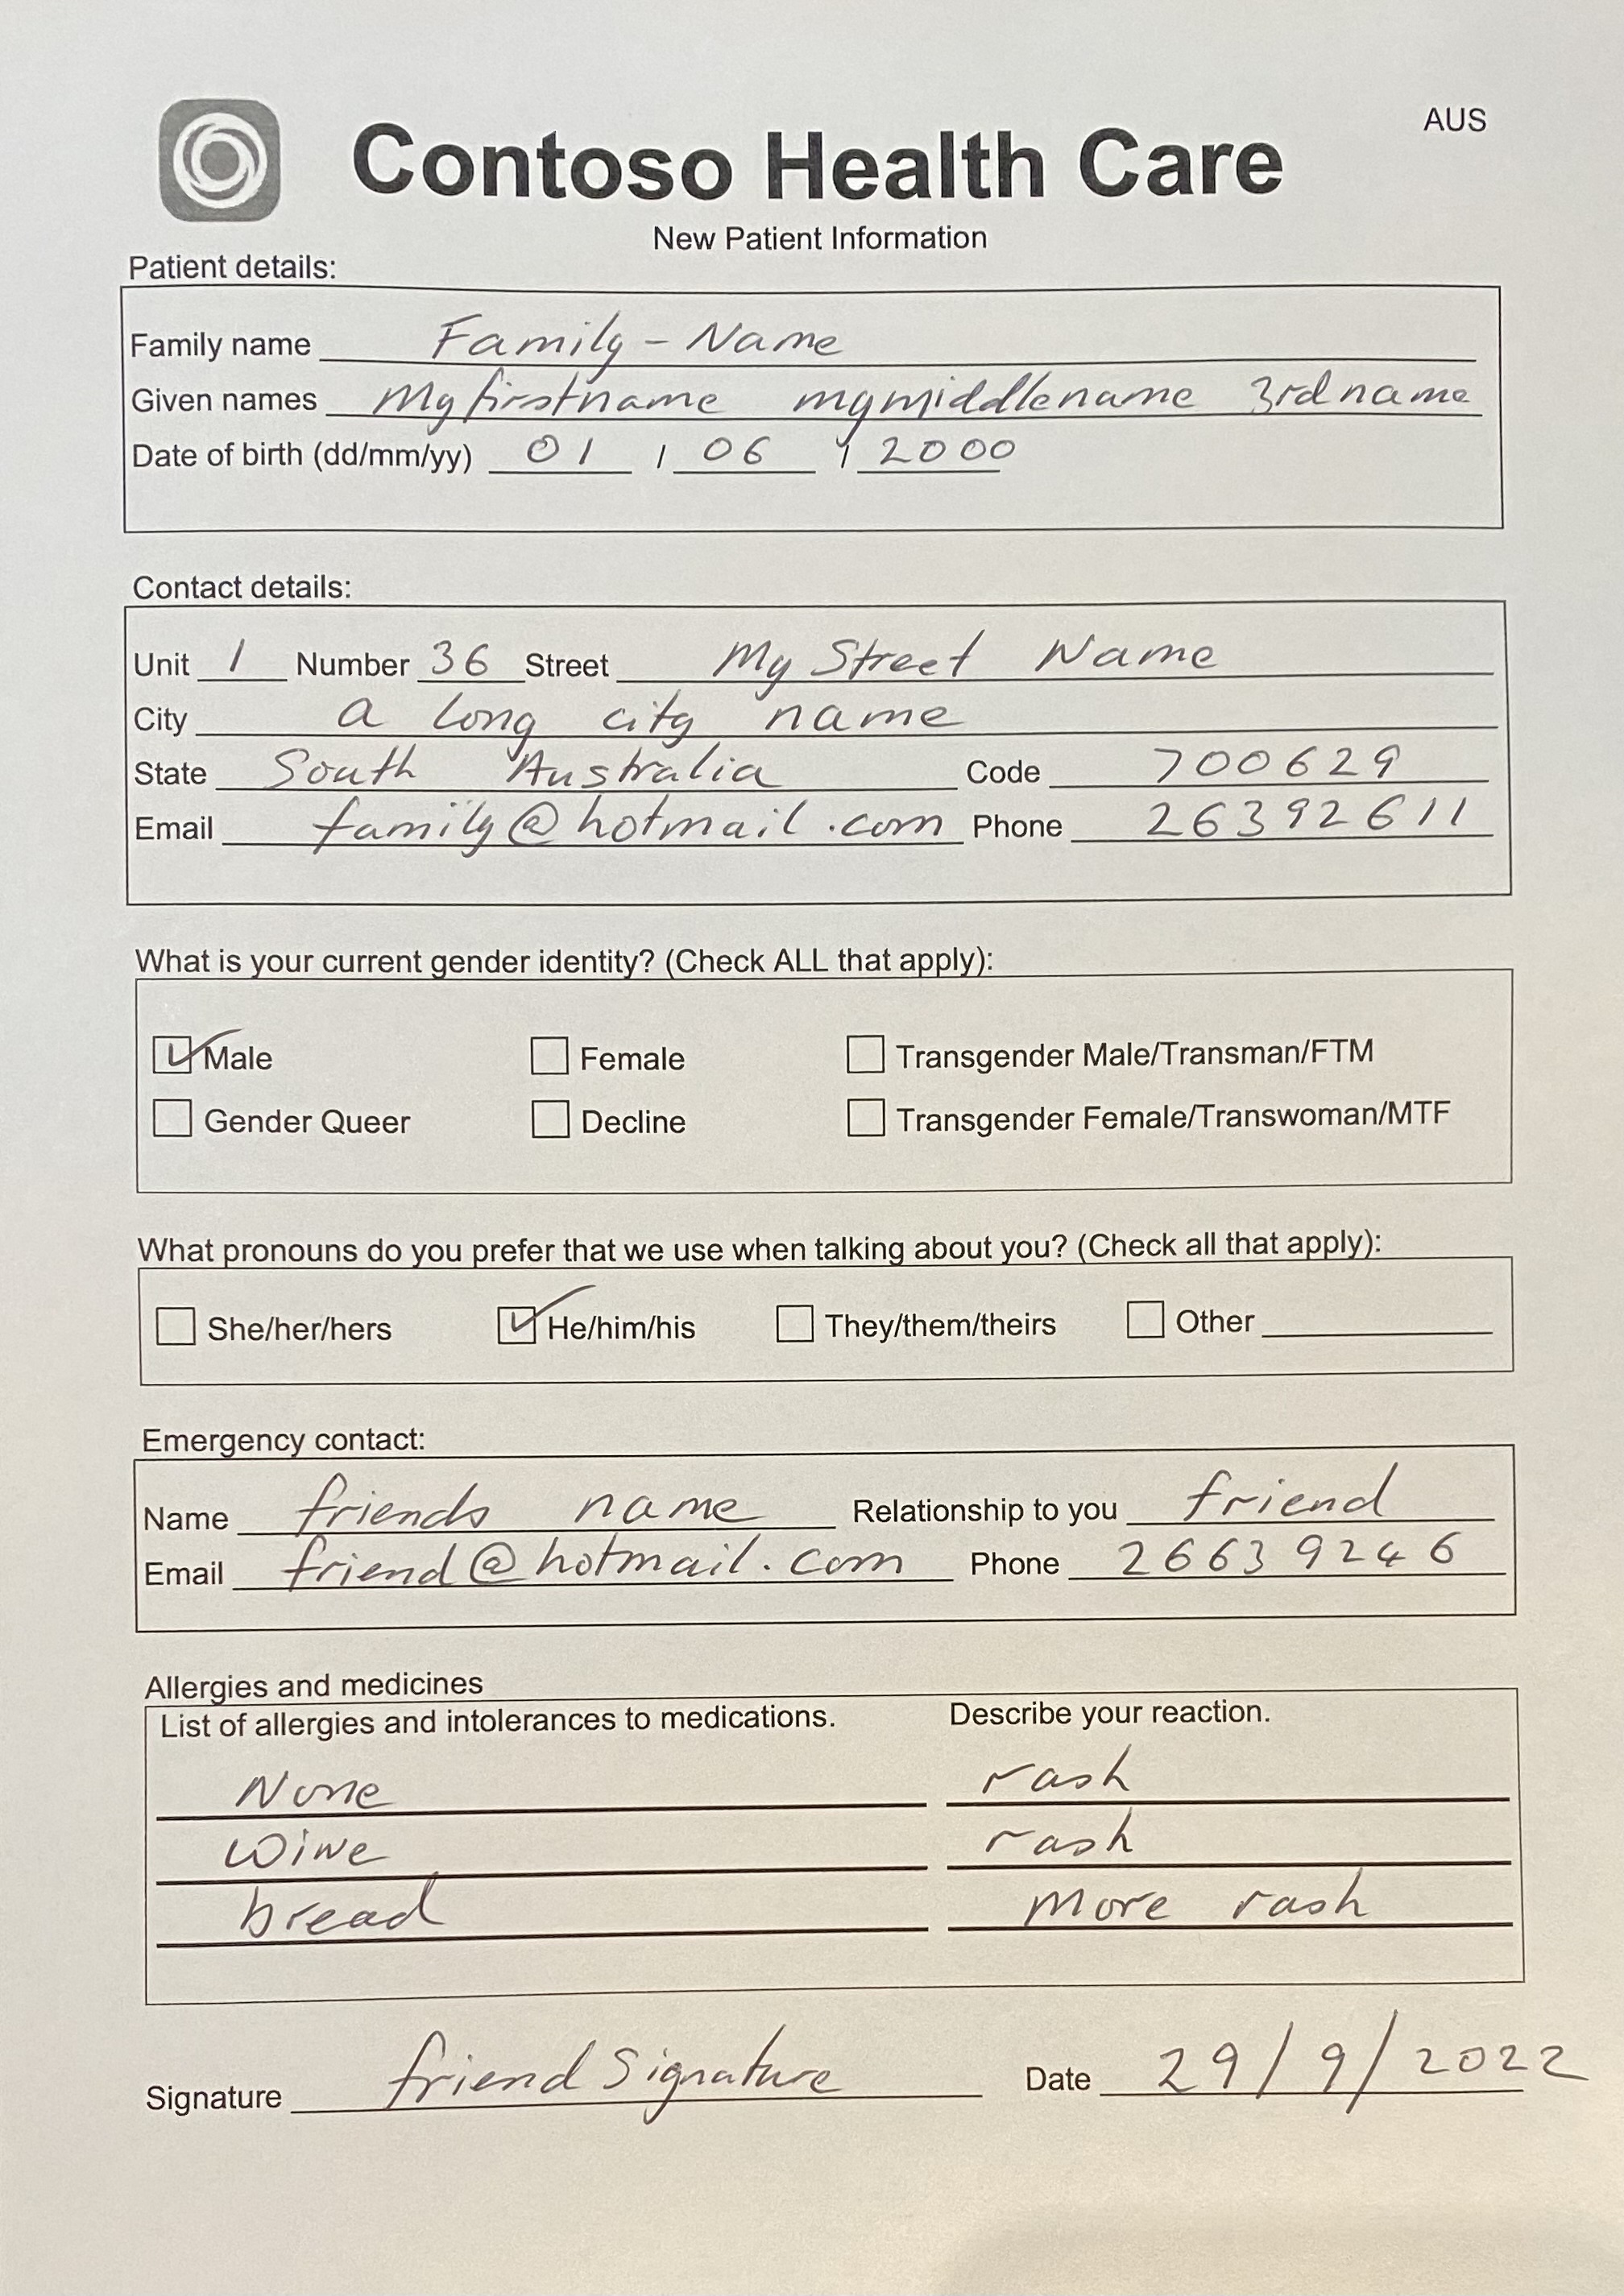 AUS
Contoso Health Care
New Patient Information
Patient details:
Family name Family - Name
Given names Myfirstname mymiddlename 3rd name
Date of birth (dd/mm/yy) 01 / 06 / 2000
Contact details:
Unit 1 Number 36 Street My Street Name
City a long city name
State South Australia Code 700629
Email family@hotmail.com Phone 26392611
What is your current gender identity? (Check ALL that apply):
Male Female Transgender Male/Transman/FTM
Gender Queer Decline Transgender Female/Transwoman/MTF
What pronouns do you prefer that we use when talking about you? (Check all that apply):
She/her/hers He/him/his They/them/theirs Other
Emergency contact:
Name friends name Relationship to you friend
Email friend@hotmail.com Phone 26639246
Allergies and medicines
List of allergies and intolerances to medications. Describe your reaction.
None rash
wine rash
bread more rash
Signature friend Signature Date 29/9/2022